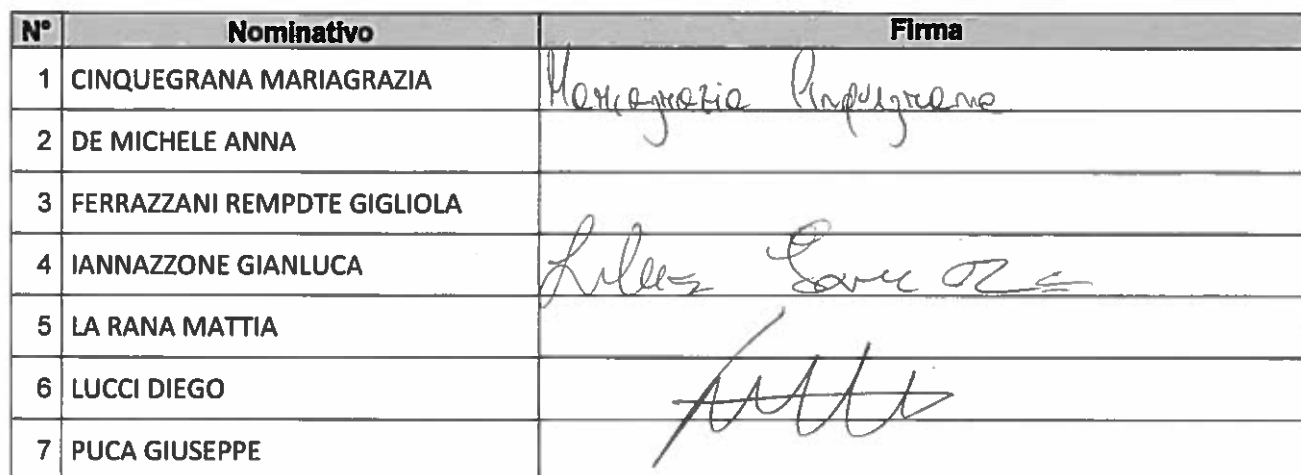 N° Nominativo Firma
1 CINQUEGRANA MARIAGRAZIA Mariagrazia Cinquegrana
2 DE MICHELE ANNA
3 FERRAZZANI REMPDTE GIGLIOLA
4 IANNAZZONE GIANLUCA
5 LA RANA MATTIA
6 LUCCI DIEGO
7 PUCA GIUSEPPE